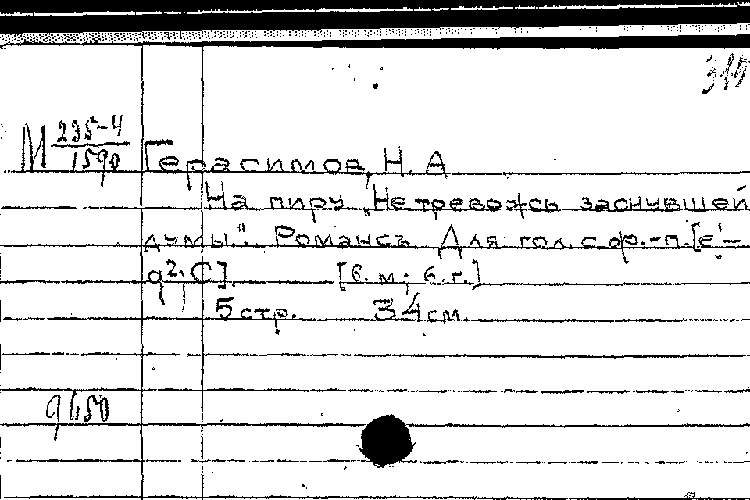 315
М 235-4
1590
Герасимов, Н. А
На пиру „Не тревожь заснувшей
думы". Романсъ. Для гол. с ф.-п. [e¹-
g². C]. [б. м; б. г.]
5 стр. 34 см.
9450